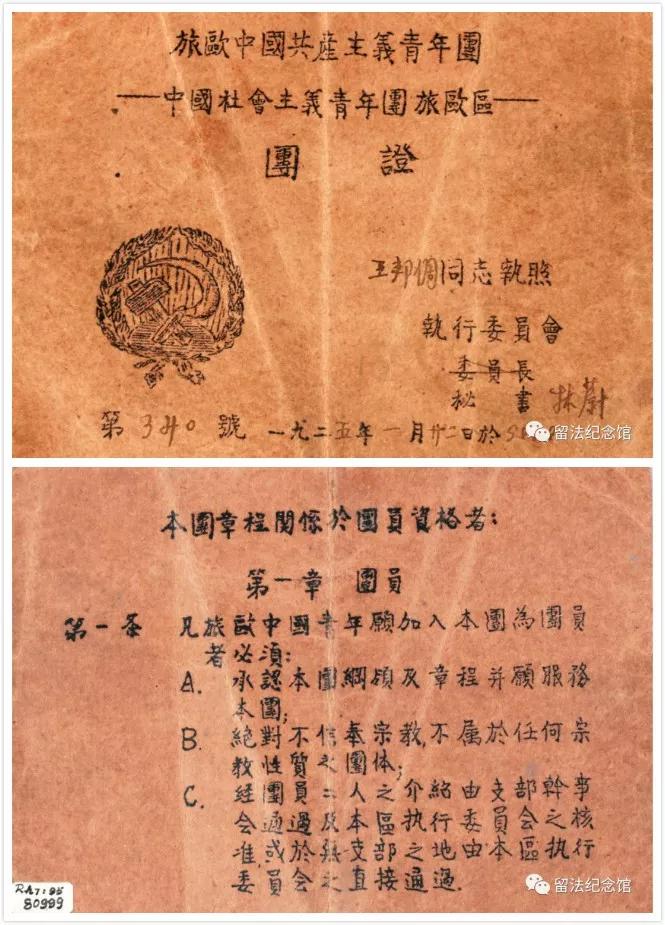 旅歐中國共產主義青年團
——中國社會主義青年團旅歐區——
團 證
王邦倜同志執照
執行委員會
委員長
秘書 林蔚
第 340 號 一九二五年 一月廿二日於
留法纪念馆
本團章程關係於團員資格者：
第一章 團員
第一条 凡旅歐中國青年願加入本團為團員
者必須：
A. 承認本團綱領及章程并願服務
本團；
B. 絕對不信奉宗教，不属於任何宗
教性質之團体；
C. 經團員二人之介紹由支部幹事
會通過及本區执行委員會之核
准，或於無支部之地由本區执行
委員會之直接通過．
RA7:95
80999
留法纪念馆